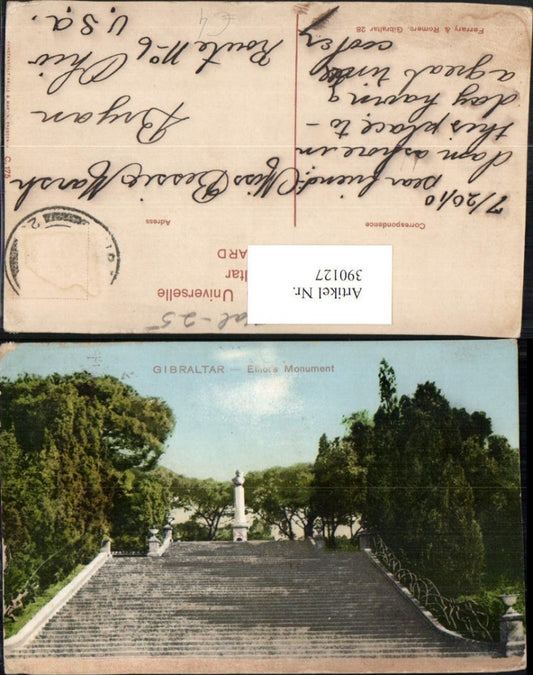 7/20/10
Dear friend:
I am ashore in
this place to-
day having
a great time
cooper
Correspondence
Ferrary & Romero, Gibraltar 28
Universelle
Address
Miss Bessie Marsh
Bryan
Ohio
Route No 6
U.S.A.
Artikel Nr.
390127
GIBRALTAR — Eliot's Monument